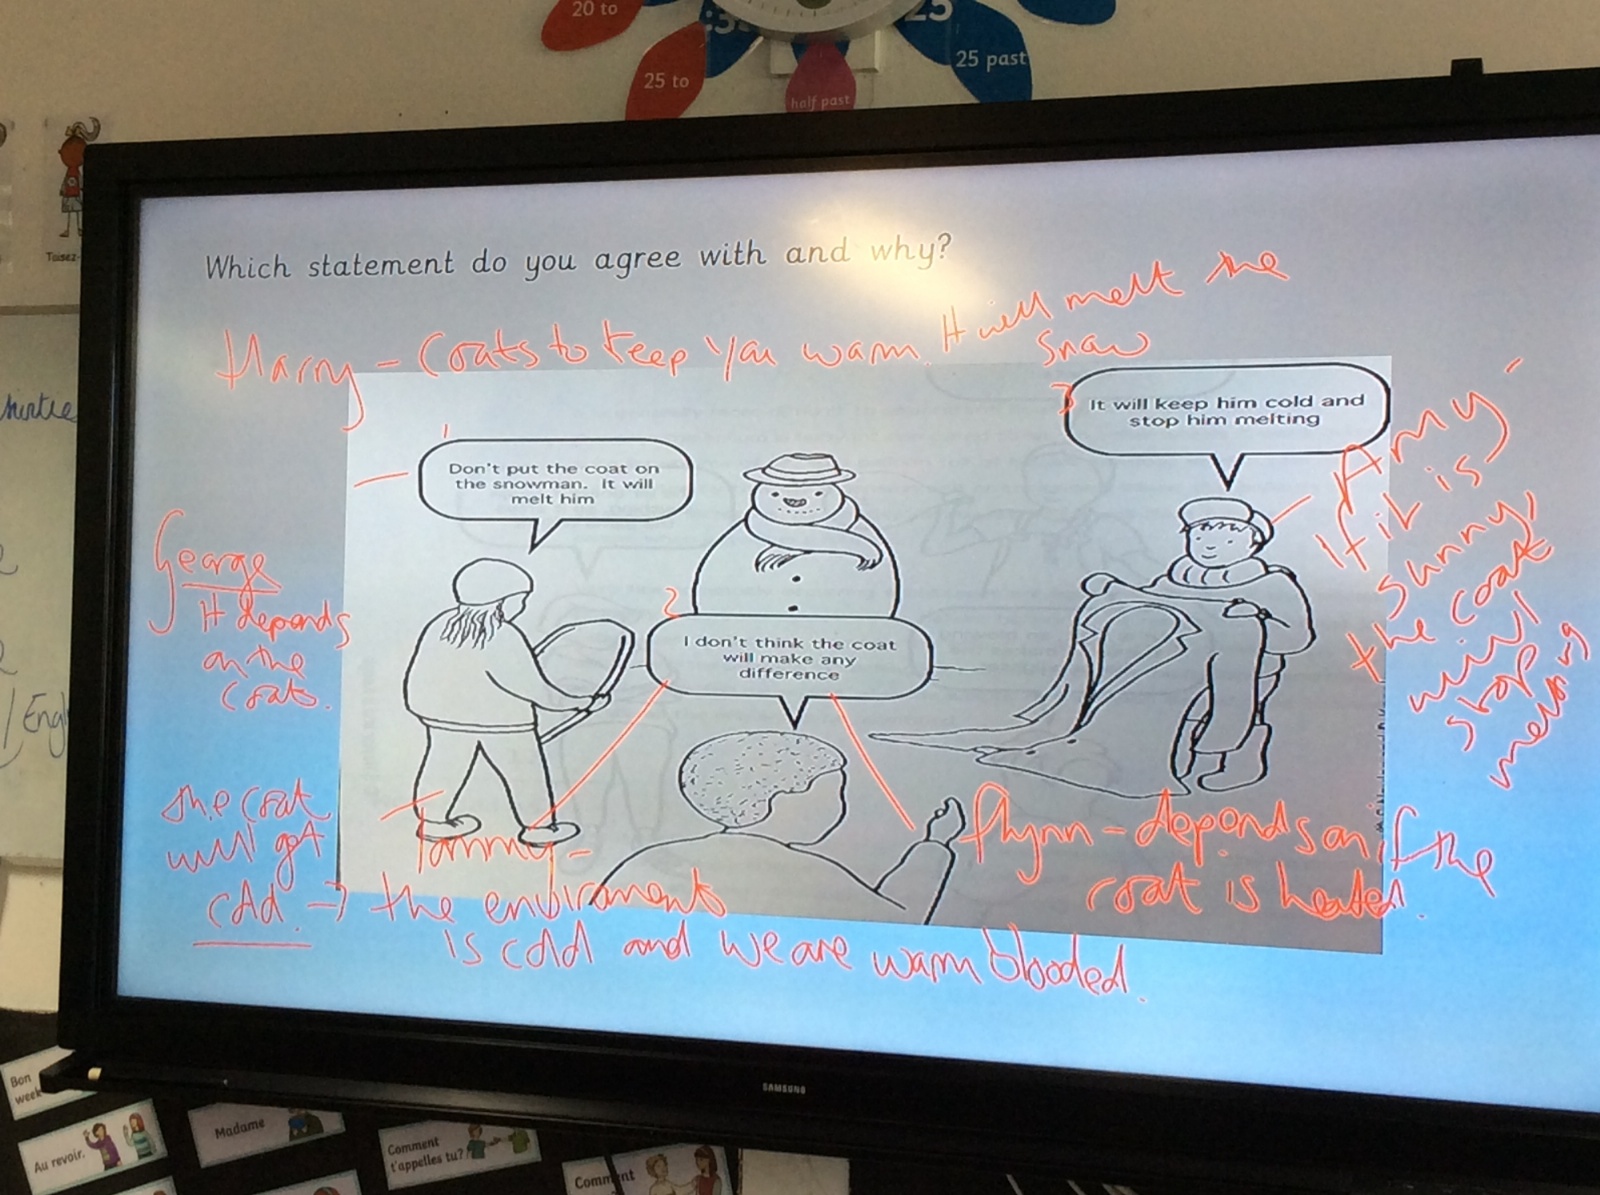 20 to
25 to
:3
half past
25
25 past
Toisez-
Which statement do you agree with and why?
Harry - Coats to keep you warm. It will melt the
snow
1
Don't put the coat on
the snowman. It will
melt him
2
I don't think the coat
will make any
difference
3
It will keep him cold and
stop him melting
George
It depends
on the
coats.
Amy -
If it is
sunny,
the coat
will
stop
melting
the coat
will get
cold. → the enviroments
Tommy -
is cold and we are warm blooded.
flynn - depends on if the
coat is heated.
Engl
SAMSUNG
Bon
week
Au revoir.
Madame
Comment
t'appelles tu?